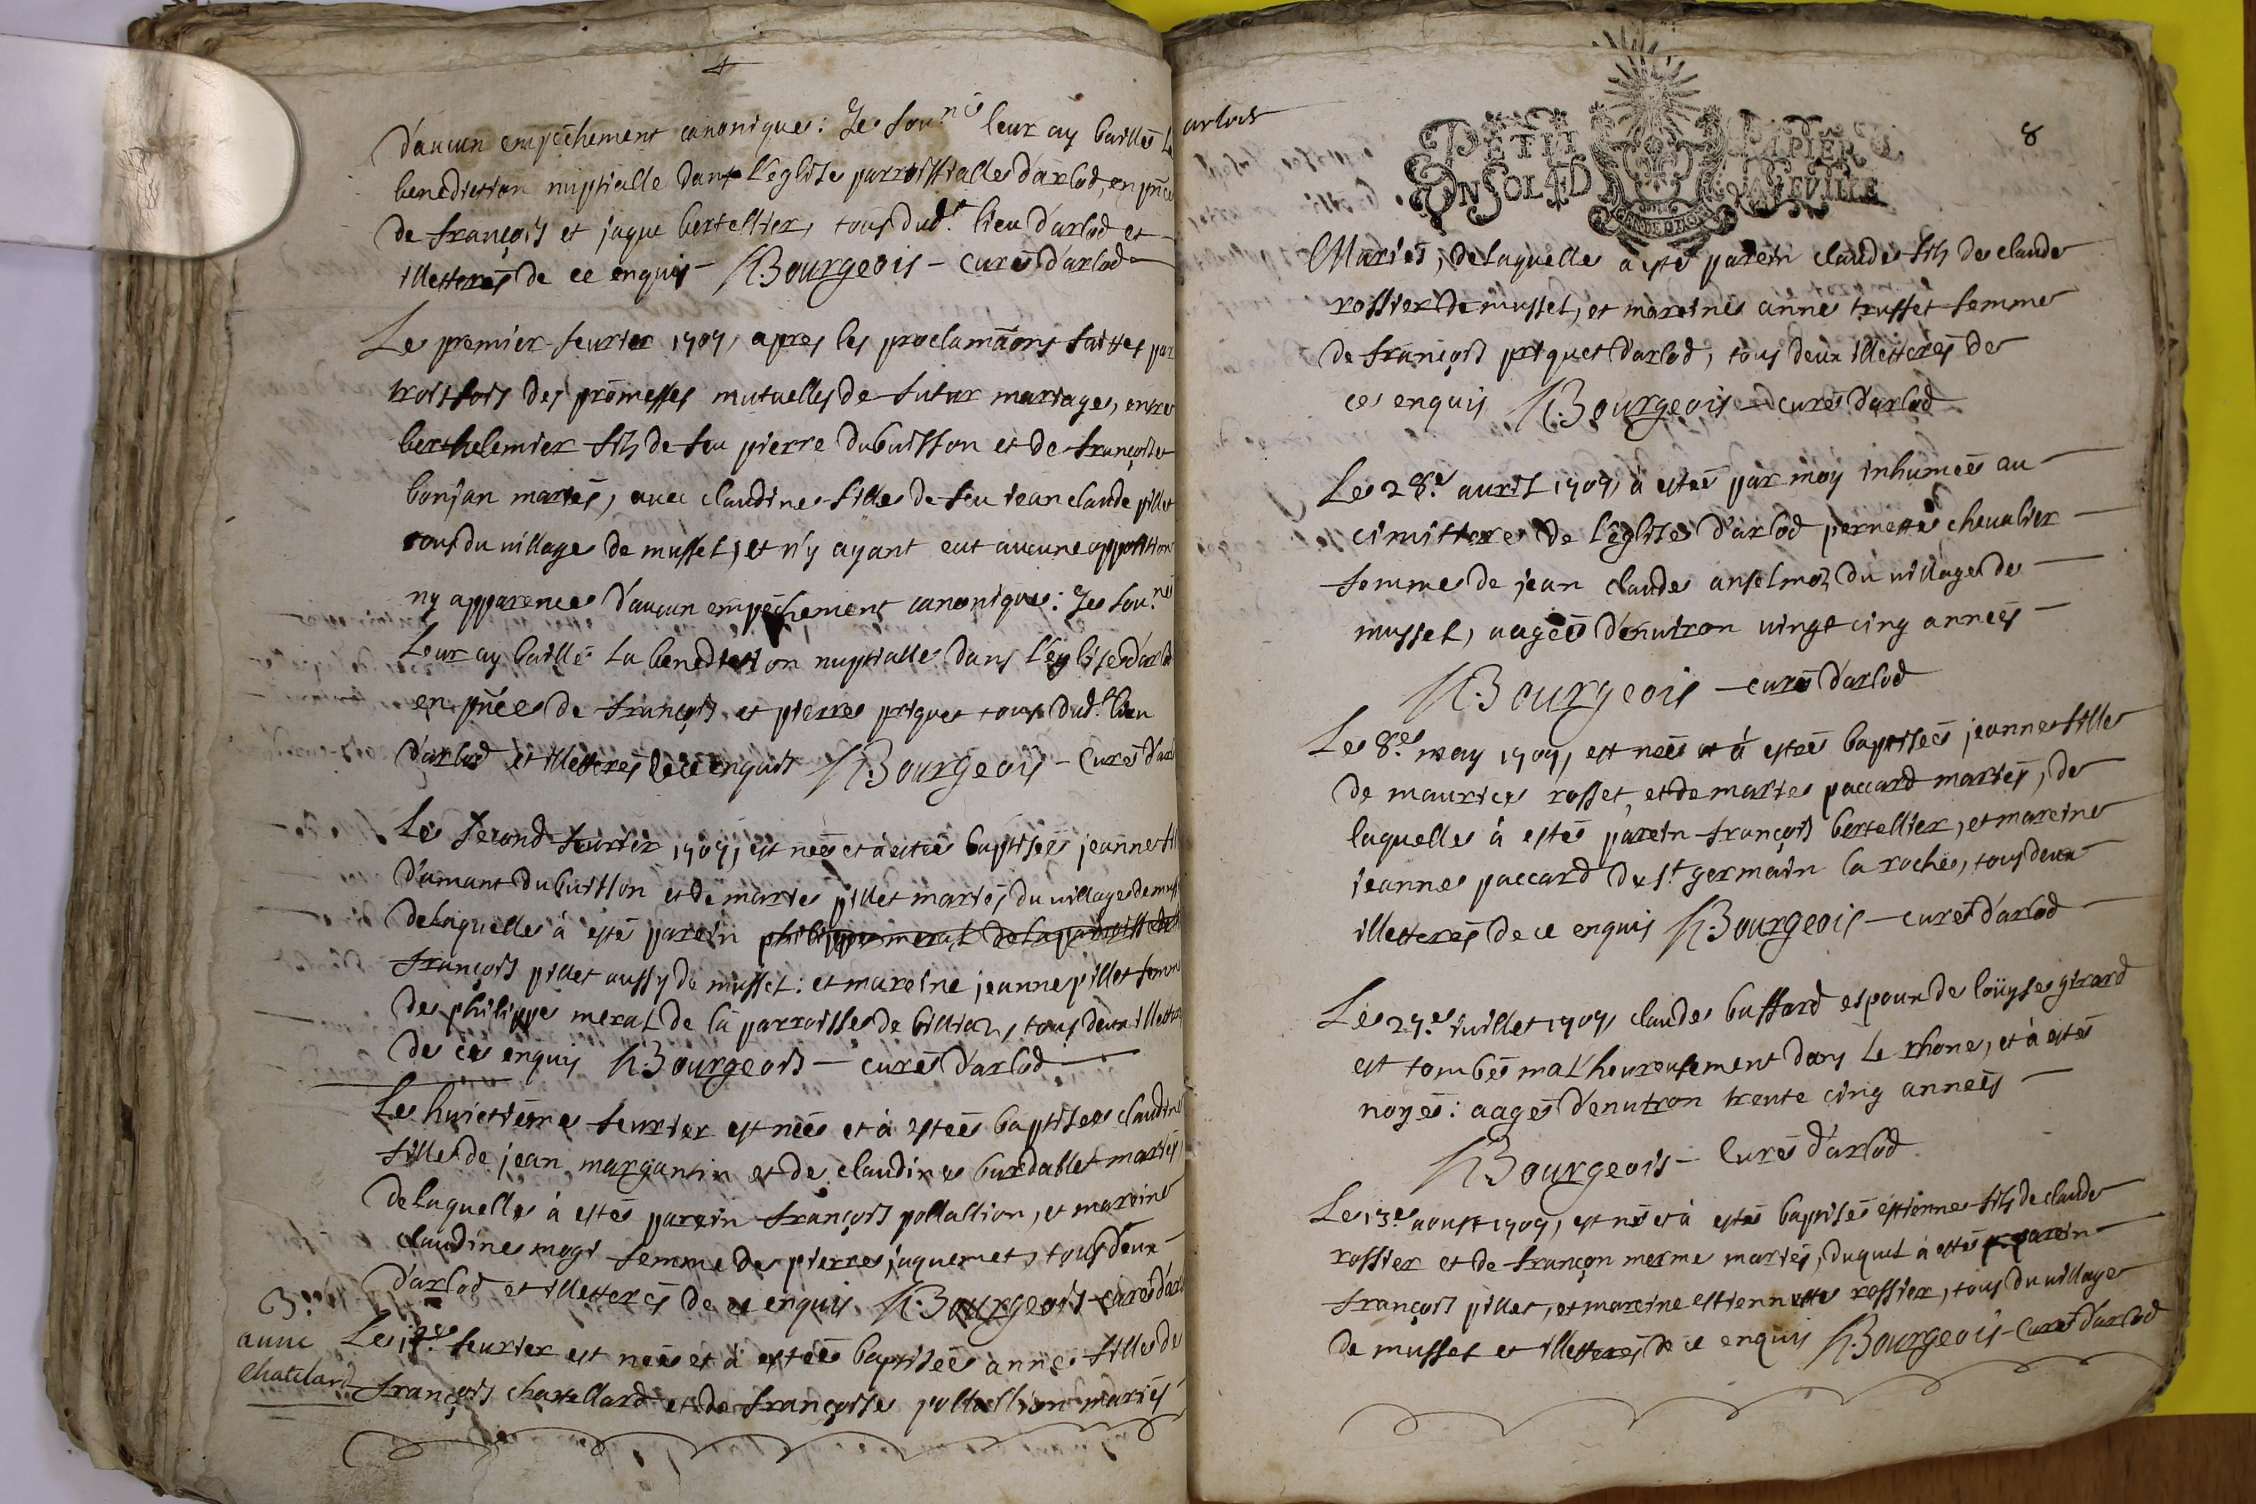 d'aucun empêchement canonique: Je sou.né leur ay baillé la
benediction nuptialle dans l'eglise parroissialle d'arlod, en pñce
de françois et jaque bertellier, tous dud.t lieu d'arlod et
illetterés de ce enquis - Bourgeois - curé d'arlod
Le premier feurier 1709, apres les proclamãons faittes par
trois fois des promesses mutuelles de futur mariage, entre
berthelemier fils de feu pierre dubuisson et de françoise
bonjan mariés, avec claudine fille de feu jean claude pillet
tous du uillage de mussel, et n'y ayant eut aucune opposition
ny apparence d'aucun empêchement canonique: Je sou.né
Leur ay baillé la benediction nuptialle dans l'eglise d'arlod
en pñce de françois et pierre priquet tous dud.t lieu
d'arlod et illetterés de ce enquis Bourgeois - Curé d'arlod
Le second feurier 1709, est née et à estée baptisée jeanne fille
d'amant dubuisson et de marie pillet mariés du uillage de mussel
de laquelle à esté parein philippe merat de la parroisse de
françois pillet aussy de mussel: et mareine jeanne pillet femme
de philippe merat de la parroisse de billiat, tous deux illetterés
de ce enquis Bourgeois - curé d'arlod
Le huictiéme feurier est née et à estée baptisée claudine
fille de jean margantin et de claudine burdallet mariés,
de laquelle à esté parein françois pollallion, et mareine
claudine mogi femme de pierre jaquemet, tous deux
d'arlod et illetterés de ce enquis Bourgeois - curé d'arlod
3.e
anne
chatelard
Le feurier est née et à estée baptisée anne fille de
françois chatellard et de françoise pollallion mariés
arlod
8
PETIT PAPIER
UN SOL 4 D LA FEUILLE
Mariés, de laquelle a esté parein claude fils de claude
rossier de mussel, et mareine anne trusset femme
de françois priquet d'arlod, tous deux illetterés de
ce enquis Bourgeois - curé d'arlod
Le 28.e auril 1709, à estée par moy inhumée au
cimittere de l'eglise d'arlod pernette cheualier
femme de jean claude anselmoz du uillage de
mussel, aagée d'enuiron uingt cinq années
Bourgeois - curé d'arlod
Le 8.e may 1709, est née et à estée baptisée jeanne fille
de maurice rosset, et de marie paccard mariés, de
laquelle à esté parein françois bertellier, et mareine
jeanne paccard de s.t germain la roche, tous deux
illetterés de ce enquis Bourgeois - curé d'arlod
Le 27.e juillet 1709 claude bussard espoux de loüyse girard
est tombé malheureusement dans le rhone, et à esté
noyé: aagé d'enuiron trente cinq années
Bourgeois - Curé d'arlod
Le 13.e aoust 1709, est né et à esté baptisé estienne fils de claude
rossier et de françon merme mariés, duquel à esté parein
françois pillet, et mareine estiennette rossier, tous du uillage
de mussel et illetterés de ce enquis Bourgeois - Curé d'arlod